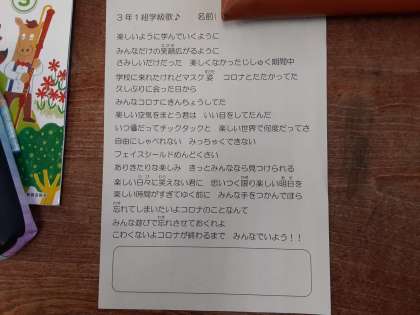 3年1組学級歌♪ 名前
楽しいように学んでいくように
みんなだけの笑顔広がるように
さみしいだけだった 楽しくなかったじしゅく期間中
学校に来れたけれどマスク姿 コロナとたたかってた
久しぶりに会った日から
みんなコロナにきんちょうしてた
楽しい空気をまとう君は いい目をしてたんだ
いつ誰だってチックタックと 楽しい世界で何度だってさ
自由にしゃべれない みっちゃくできない
フェイスシールドめんどくさい
ありきたりな楽しみ きっとみんななら見つけられる
楽しい日々に笑えない君に 思いつく限り楽しい明日を
楽しい時間がすぎてゆく前に みんな手をつかんでほら
忘れてしまいたいよコロナのことなんて
みんな遊びで忘れさせておくれよ
こわくないよコロナが終わるまで みんなでいよう!!